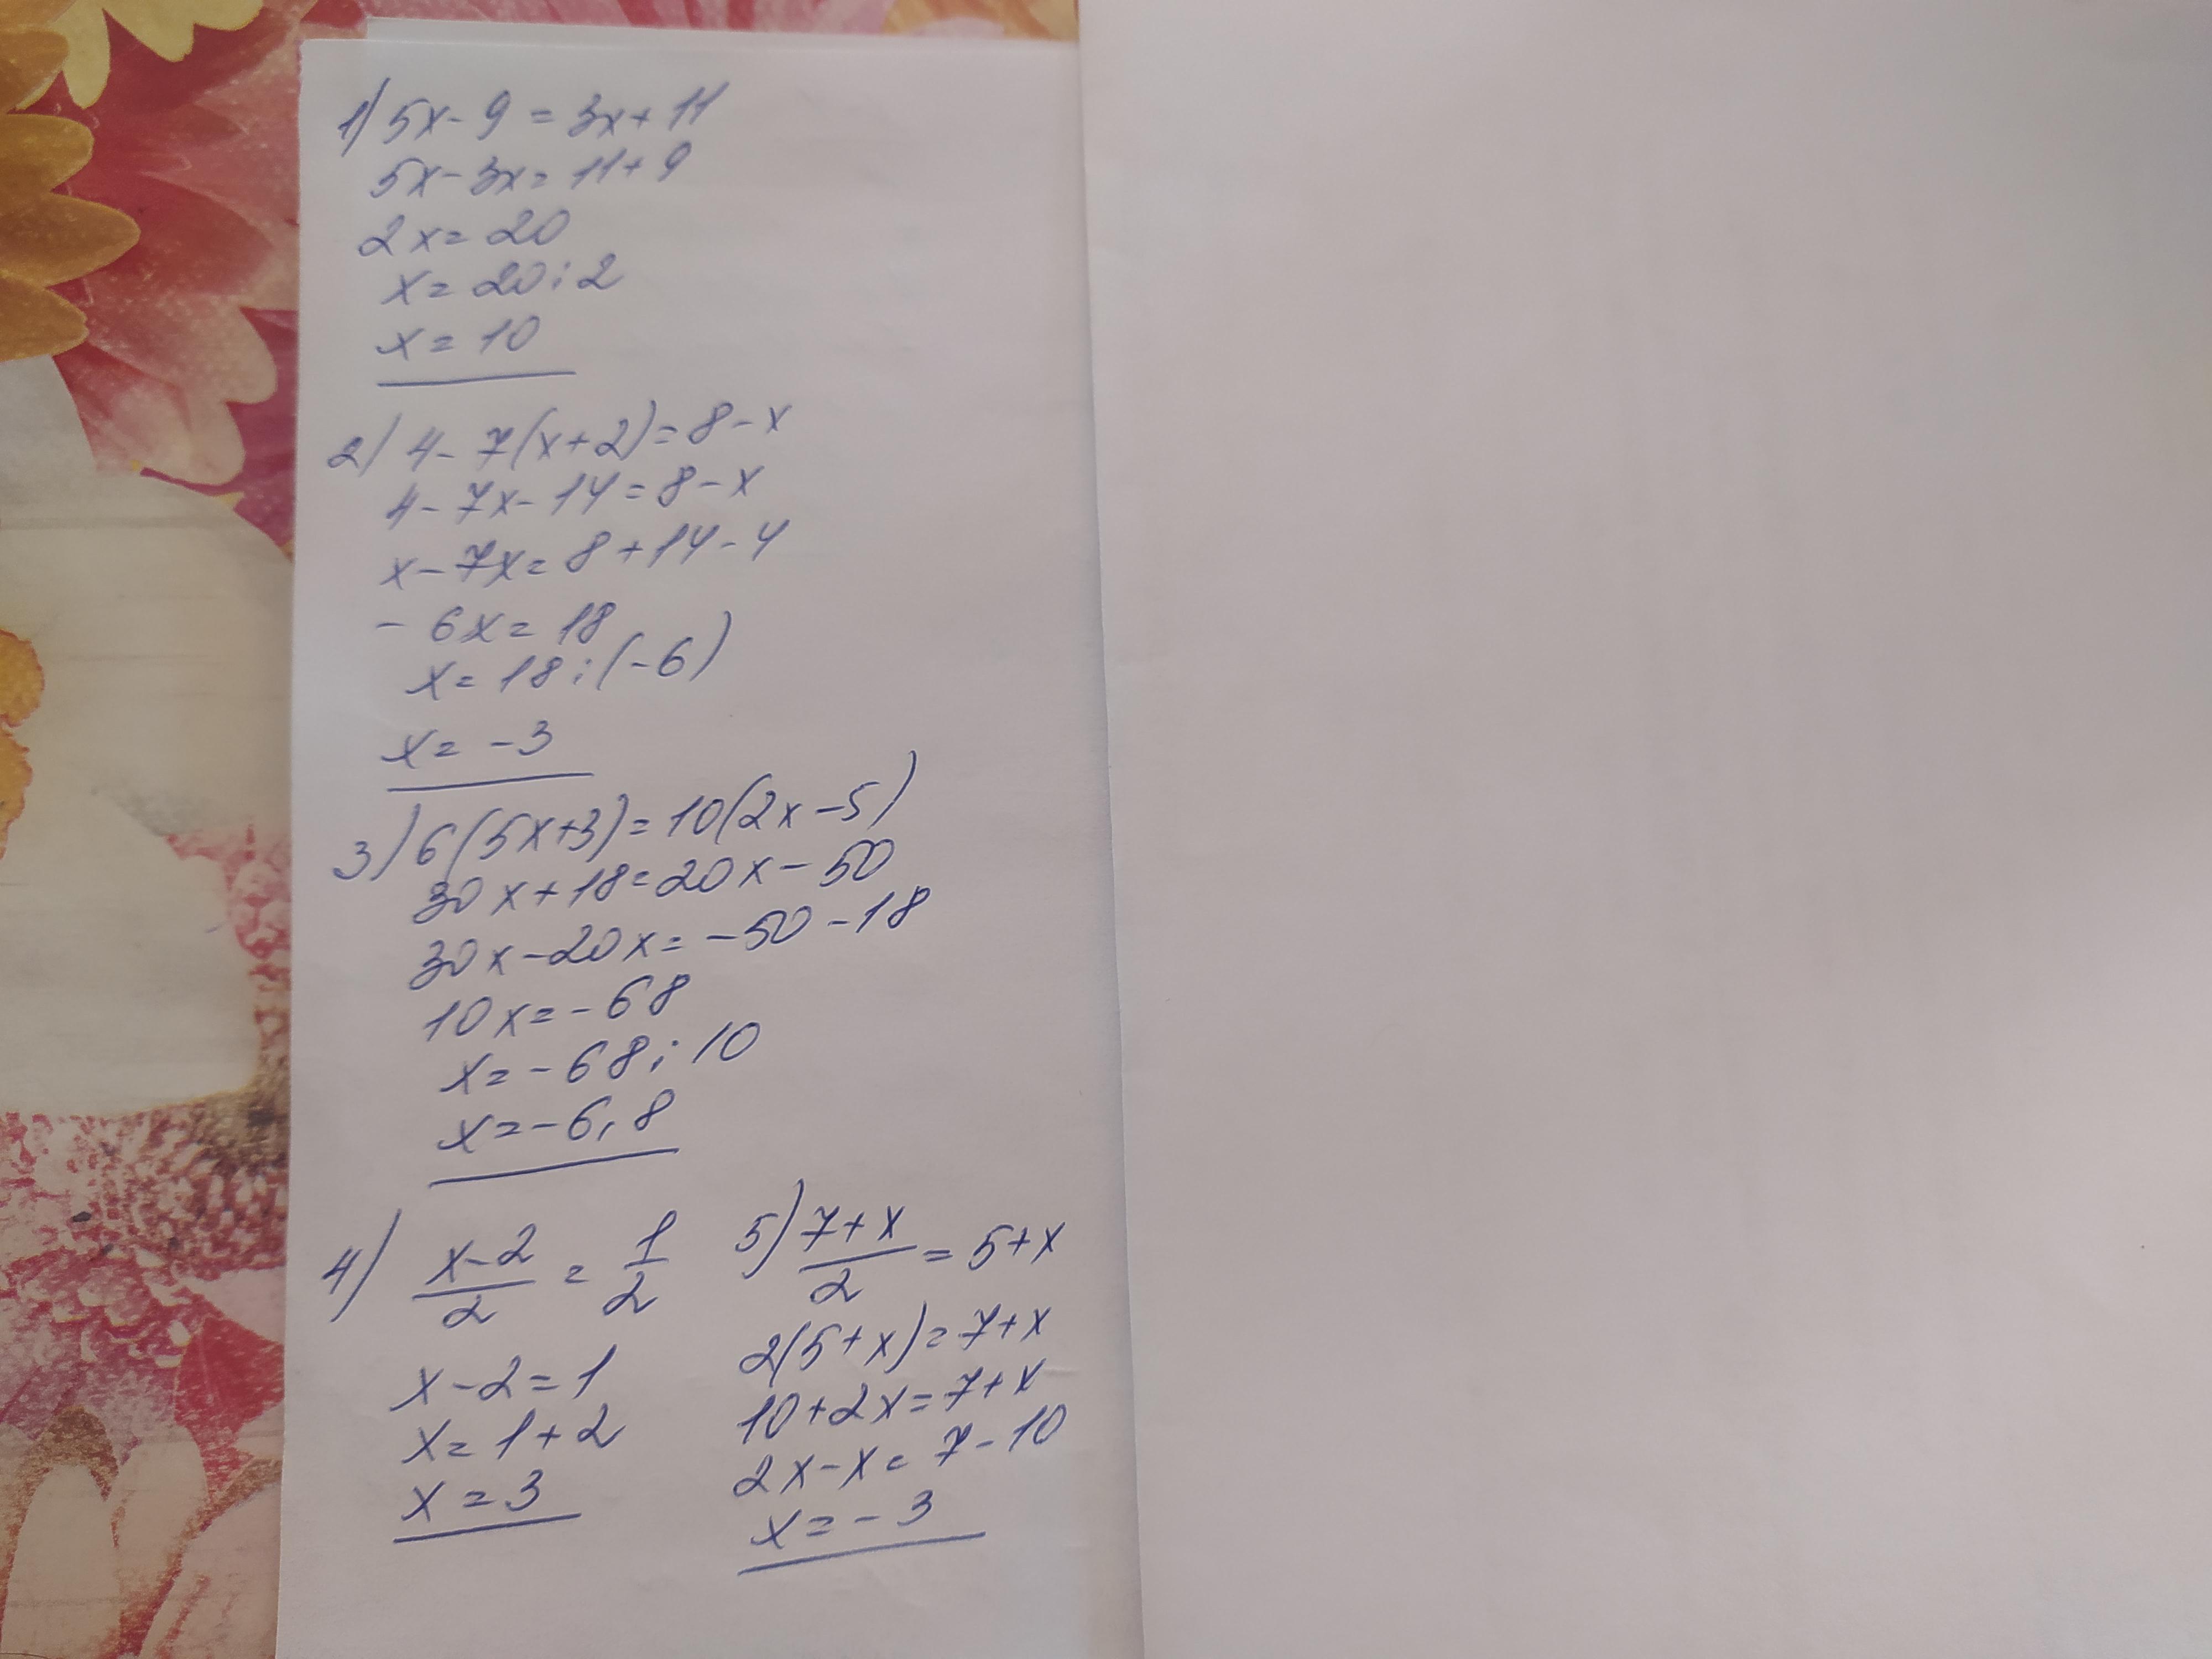 1) 5x - 9 = 3x + 11
5x - 3x = 11 + 9
2x = 20
x = 20 : 2
x = 10
2) 4 - 7(x + 2) = 8 - x
4 - 7x - 14 = 8 - x
x - 7x = 8 + 14 - 4
- 6x = 18
x = 18 : (-6)
x = -3
3) 6(5x + 3) = 10(2x - 5)
30x + 18 = 20x - 50
30x - 20x = -50 - 18
10x = -68
x = -68 : 10
x = -6,8
4) (x - 2)/2 = 1/2
x - 2 = 1
x = 1 + 2
x = 3
5) (7 + x)/2 = 5 + x
2(5 + x) = 7 + x
10 + 2x = 7 + x
2x - x = 7 - 10
x = -3